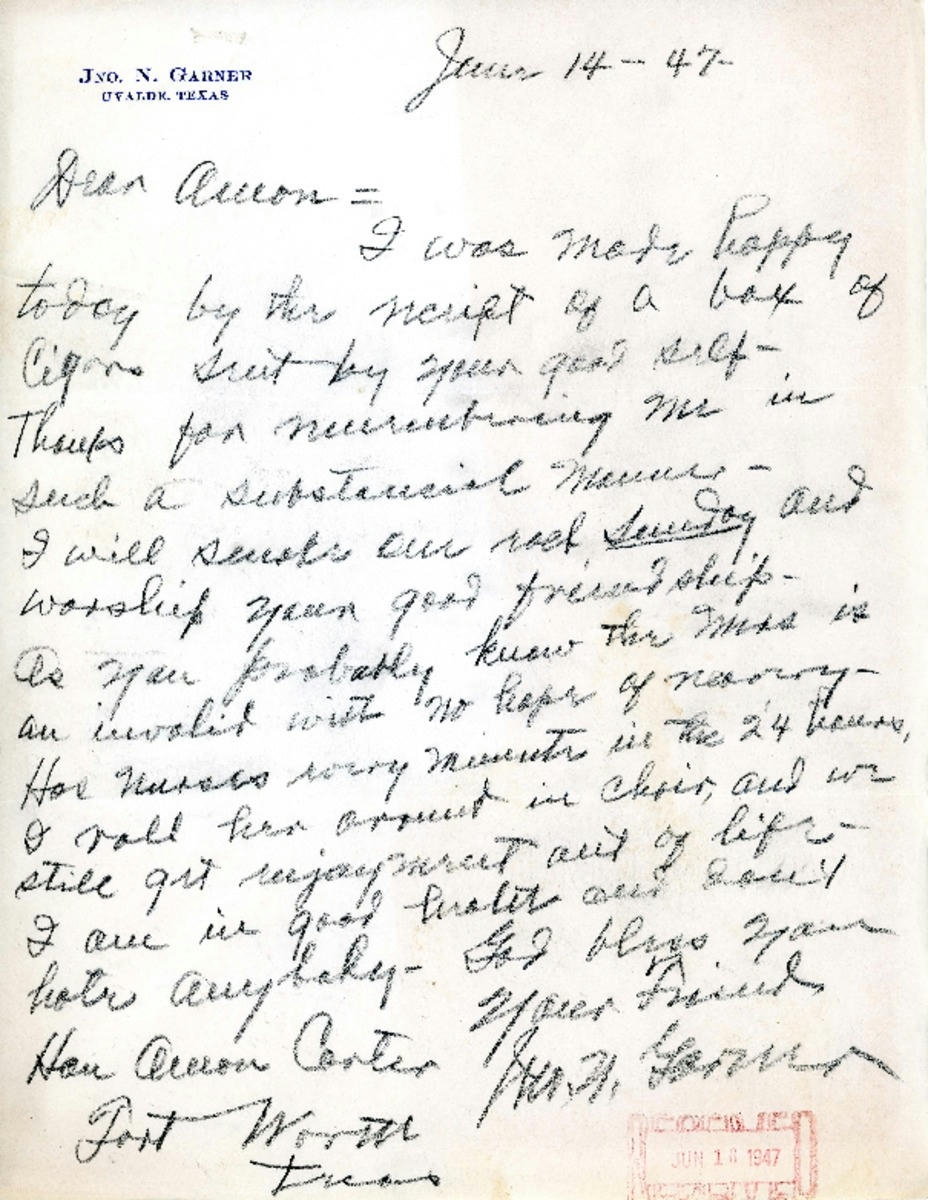 JNO. N. GARNER
UVALDE, TEXAS
June 14-47-
Dear Amon =
I was made happy
today by the receipt of a box of
Cigars sent by your good self-
Thanks for remembering me in
such a substancial manner-
I will smoke one each Sunday and
worship your good friendship-
As you probably know the Mrs is
an invalid with no hope of recovery-
Has nurses every minute in the 24 hours,
I roll her around in chair, and we
still get enjoyment out of life-
I am in good health and don't
hate anybody- God bless you
Your Friend
Jno. N. Garner
Hon Amon Carter
Fort Worth
Texas
JUN 16 1947